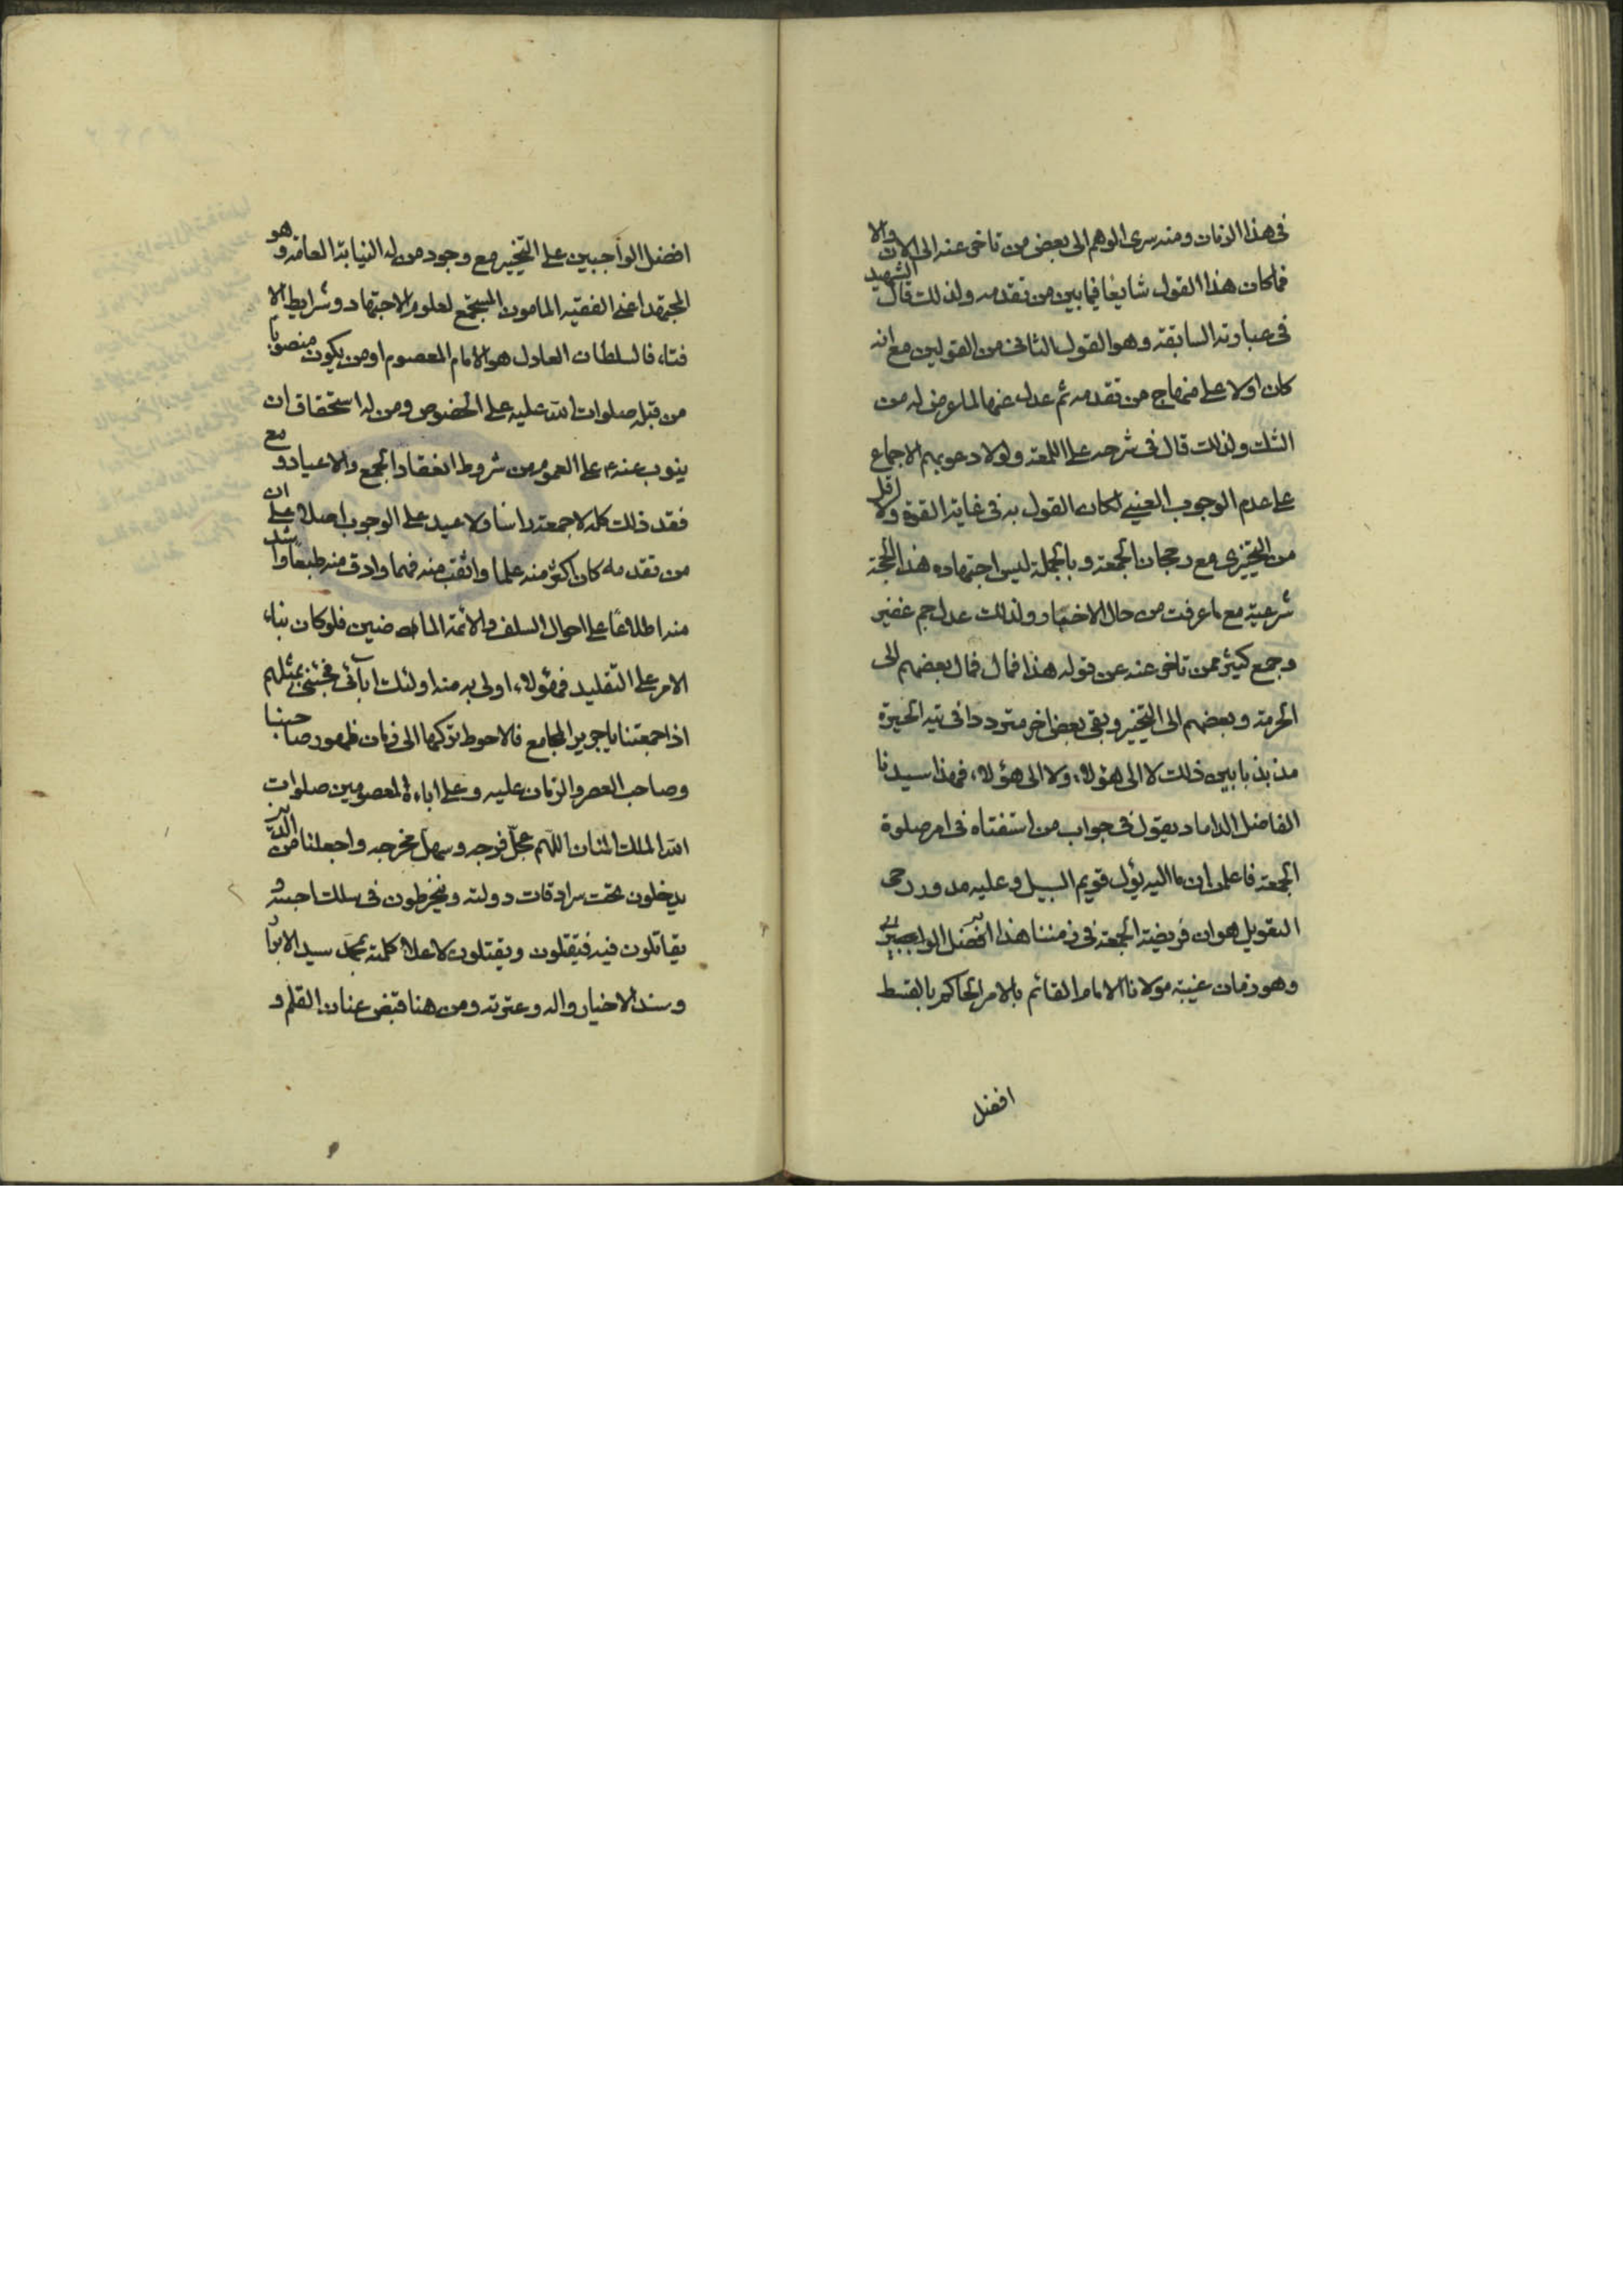 في هذا الزمان ومنه سرى الوهم الى بعض من تاخر عنه الى الان والا
فما كان هذا القول شايعا فيما بين من تقدمه ولذلك قال الشهيد
في عبارته السابقة وهو القول الثاني من القولين مع انه
كان اولا على منهاج من تقدمه ثم عدل عنها لما عرض له من
الشك ولذلك قال في شرحه على اللمعة ولولا دعويهم الاجماع
على عدم الوجوب العيني لكان القول به في غاية القوة ولا اقل
من التخييري مع رجحان الجمعة وبالجملة ليس اجتهاده هذا بحجة
شرعية مع ما عرفت من حال الاخبار ولذلك عدل جم غفير
وجمع كثير ممن تاخر عنه عن قوله هذا فمال بعضهم الى
الحرمة وبعضهم الى التخيير وبقى بعض اخر مترددا في تيه الحيرة
مذبذبا بين ذلك لا الى هؤلاء ولا الى هؤلاء فهذا سيدنا
الفاضل الداماد يقول في جواب من استفتاه في امر صلوة
الجمعة فاعلمن ان ما اليه يؤل قويم السبيل وعليه مدور رحى
التعويل هو ان فريضة الجمعة في زمننا هذا افضل الواجبين
وهو زمان غيبة مولانا الامام القائم بالامر الحاكم بالقسط
افضل
افضل الواجبين على التخيير مع وجود من له النيابة العامة وهو
المجتهد اعنى الفقيه المامون المستجمع لعلوم الاجتهاد وشرايط الا
فتاء فالسلطان العادل هو الامام المعصوم او من يكون منصوبا
من قبله صلوات الله عليه على الخصوص ومن له استحقاق ان
ينوب عنه ع على العموم من شروط انعقاد الجمع والاعياد ومع
فقد ذلك كله لا جمعة راسا ولا عيد على الوجوب اصلا على ان
من تقدمه كان اكثر منه علما واثقب منه فهما وادق منه طبعا واشد
منه اطلاعا على احوال السلف والائمة الماضين فلو كان بناء
الامر على التقليد فهؤلاء اولى به منه اولئك آبائى فجئنى بمثلهم
اذا جمعتنا يا جرير المجامع فالاحوط تركها الى زمان ظهور صاحبنا
وصاحب العصر والزمان عليه وعلى اباءه المعصومين صلوات
الله الملك المنان اللهم عجل فرجه وسهل مخرجه واجعلنا من الذين
يدخلون تحت سرادقات دولته وينخرطون في سلك احبته و
يقاتلون فيه فيقتلون ويقتلون لاعلاء كلمته بمحمد سيد الابرار
وسند الاخيار واله وعترته ومن هنا قبض عنان القلم و